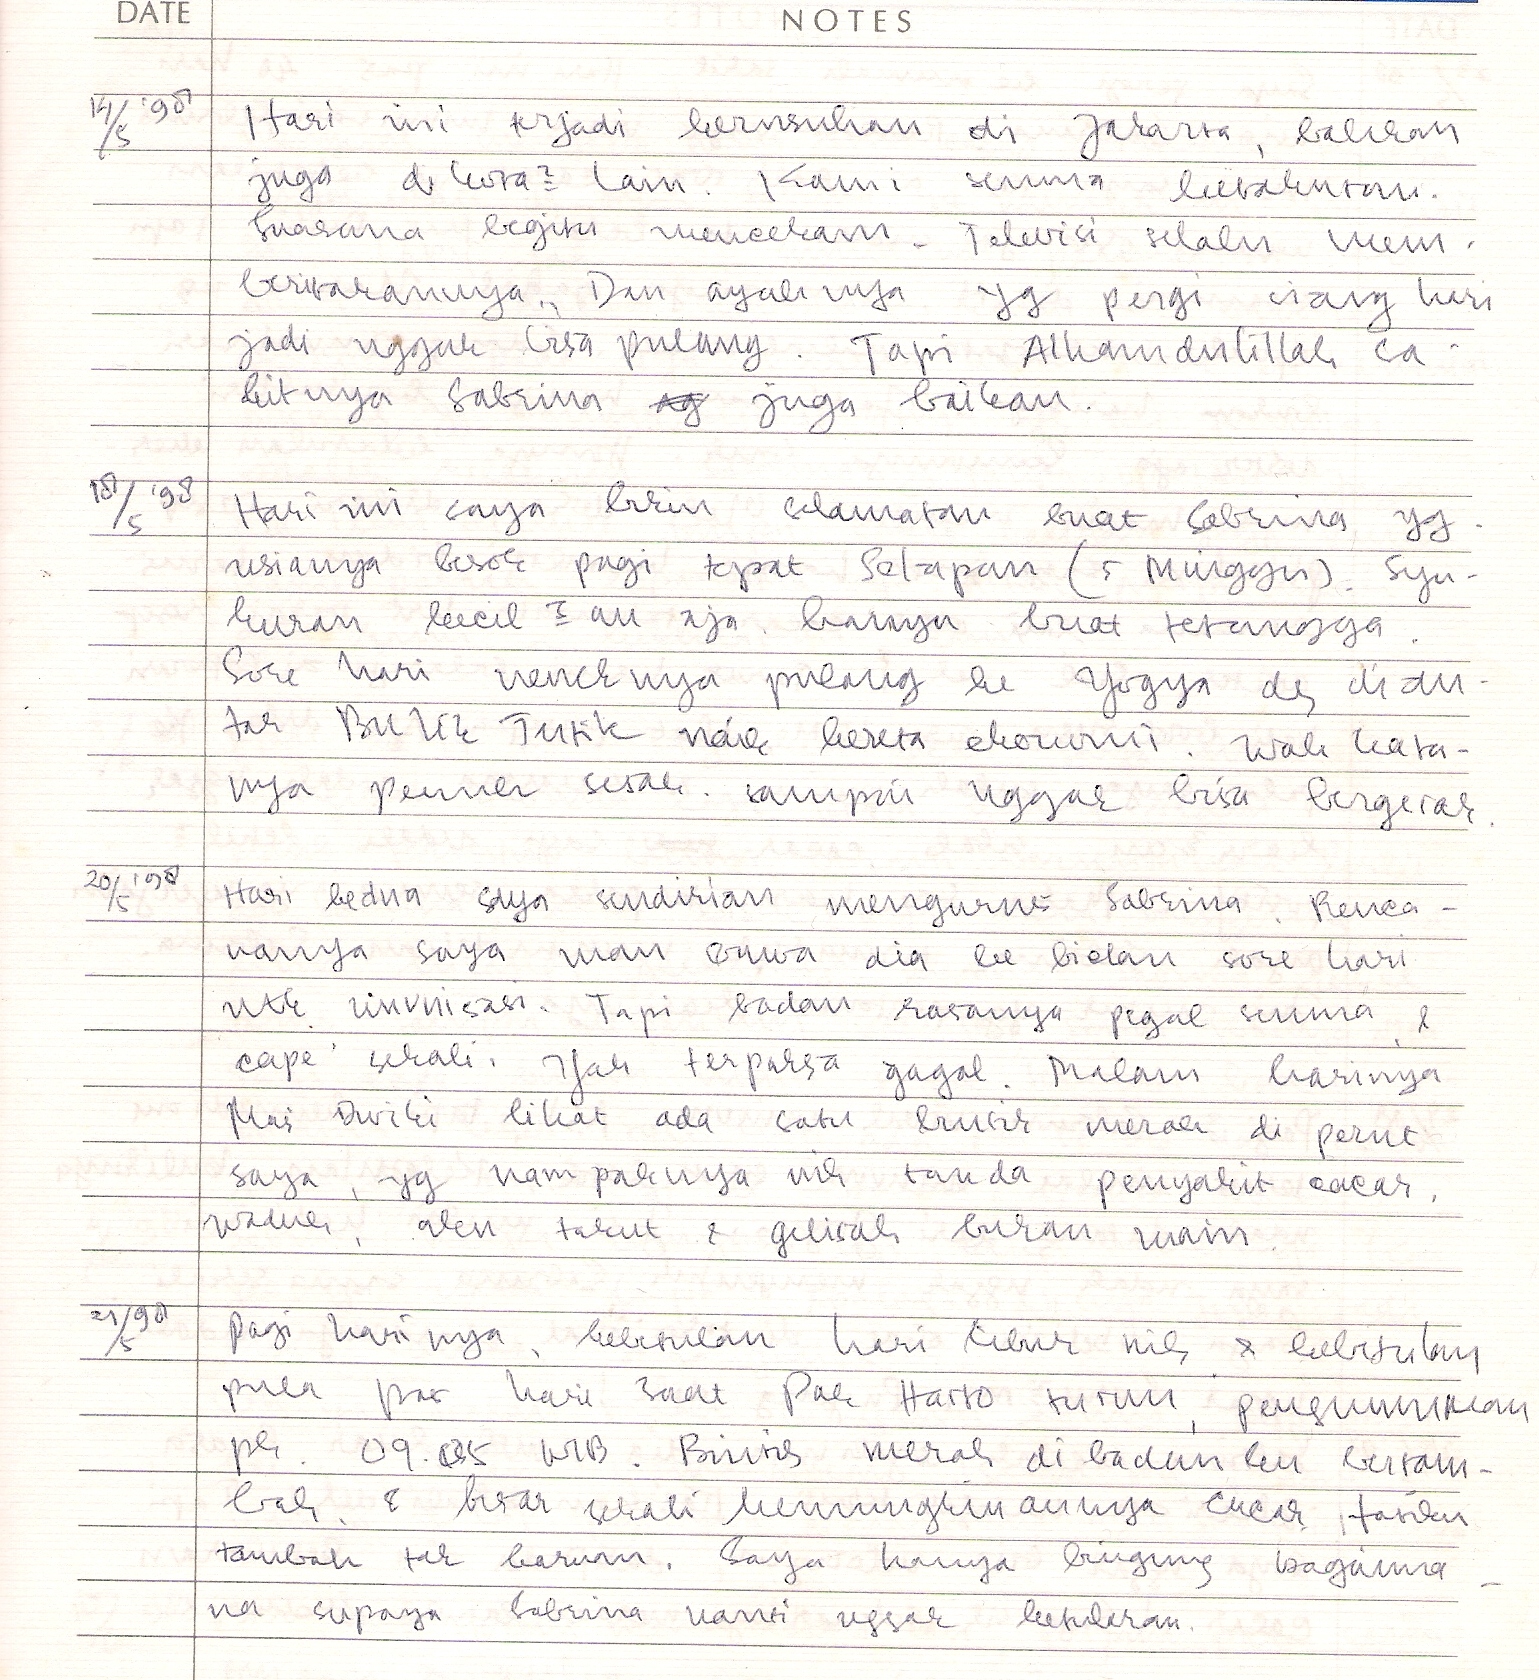 DATE NOTES
14/5 '98 Hari ini terjadi kerusuhan di Jakarta, bahkan
juga di kota2 lain. Kami semua ketakutan.
Suasana begitu mencekam. Televisi selalu mem-
beritakannya. Dan ayahnya yg pergi siang hari
jadi nggak bisa pulang. Tapi Alhamdulillah sa-
kitnya Sabrina juga baikan.
18/5 '98 Hari ini saya bikin selamatan buat Sabrina yg
usianya besok pagi tepat Selapan (5 Minggu). Syu-
kuran kecil2 an aja. hanya buat tetangga.
Sore hari neneknya pulang ke Yogya dg dian-
tar Bulik Tutik naik kereta ekonomi. Wah kata-
nya penuh sesak. sampai nggak bisa bergerak.
20/5 '98 Hari kedua saya sendirian mengurus Sabrina. Renca-
nanya saya mau bawa dia ke bidan sore hari
utk imunisasi. Tapi badan rasanya pegal semua &
cape' sekali. Yah terpaksa gagal. Malam harinya
Mas Dwiki lihat ada satu bintik merah di perut
saya, yg nampaknya nih tanda penyakit cacar.
Waduh, aku takut & gelisah bukan main.
21/5 98 Pagi harinya, kebetulan hari libur nih, & kebetulan
pula pas hari saat Pak Harto turun, pengumuman
pk. 09.05 WIB. Bintik merah di badanku bertam-
bah, & besar sekali kemungkinannya cacar,
tambah tak karuan. Saya hanya bingung bagaima-
na supaya Sabrina nanti nggak ketularan.